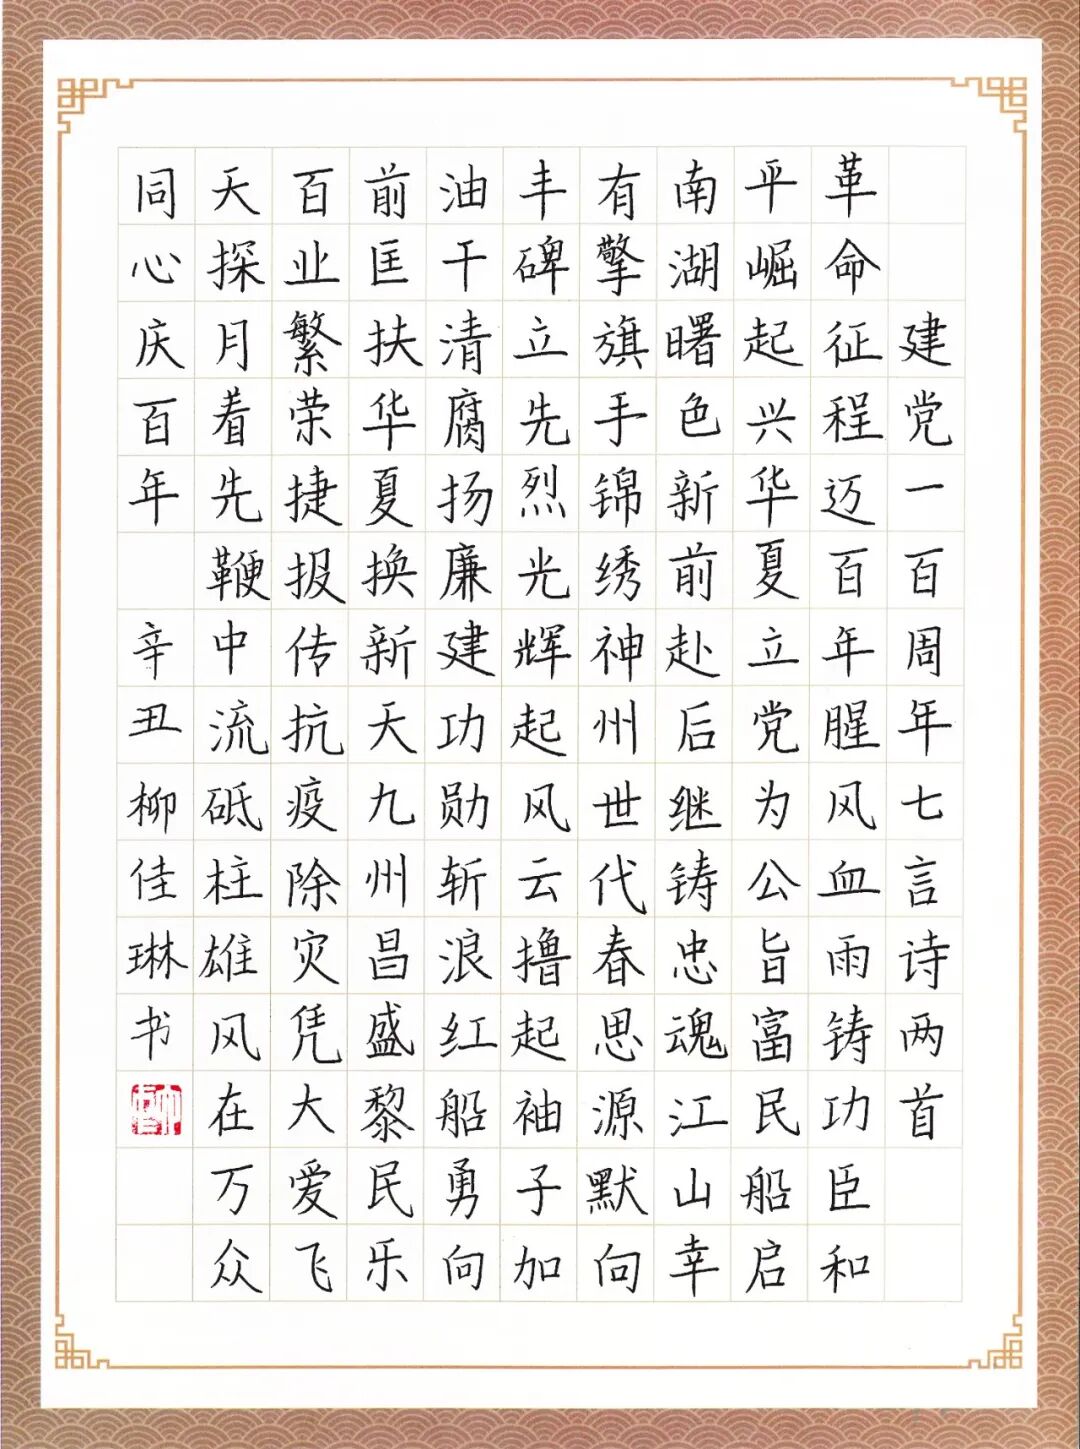 建党一百周年七言诗两首
革命征程迈百年腥风血雨铸功臣和
平崛起兴华夏立党为公旨富民船启
南湖曙色新前赴后继铸忠魂江山幸
有擎旗手锦绣神州世代春思源默向
丰碑立先烈光辉起风云撸起袖子加
油干清腐扬廉建功勋斩浪红船勇向
前匡扶华夏换新天九州昌盛黎民乐
百业繁荣捷报传抗疫除灾凭大爱飞
天探月着先鞭中流砥柱雄风在万众
同心庆百年 辛丑柳佳琳书